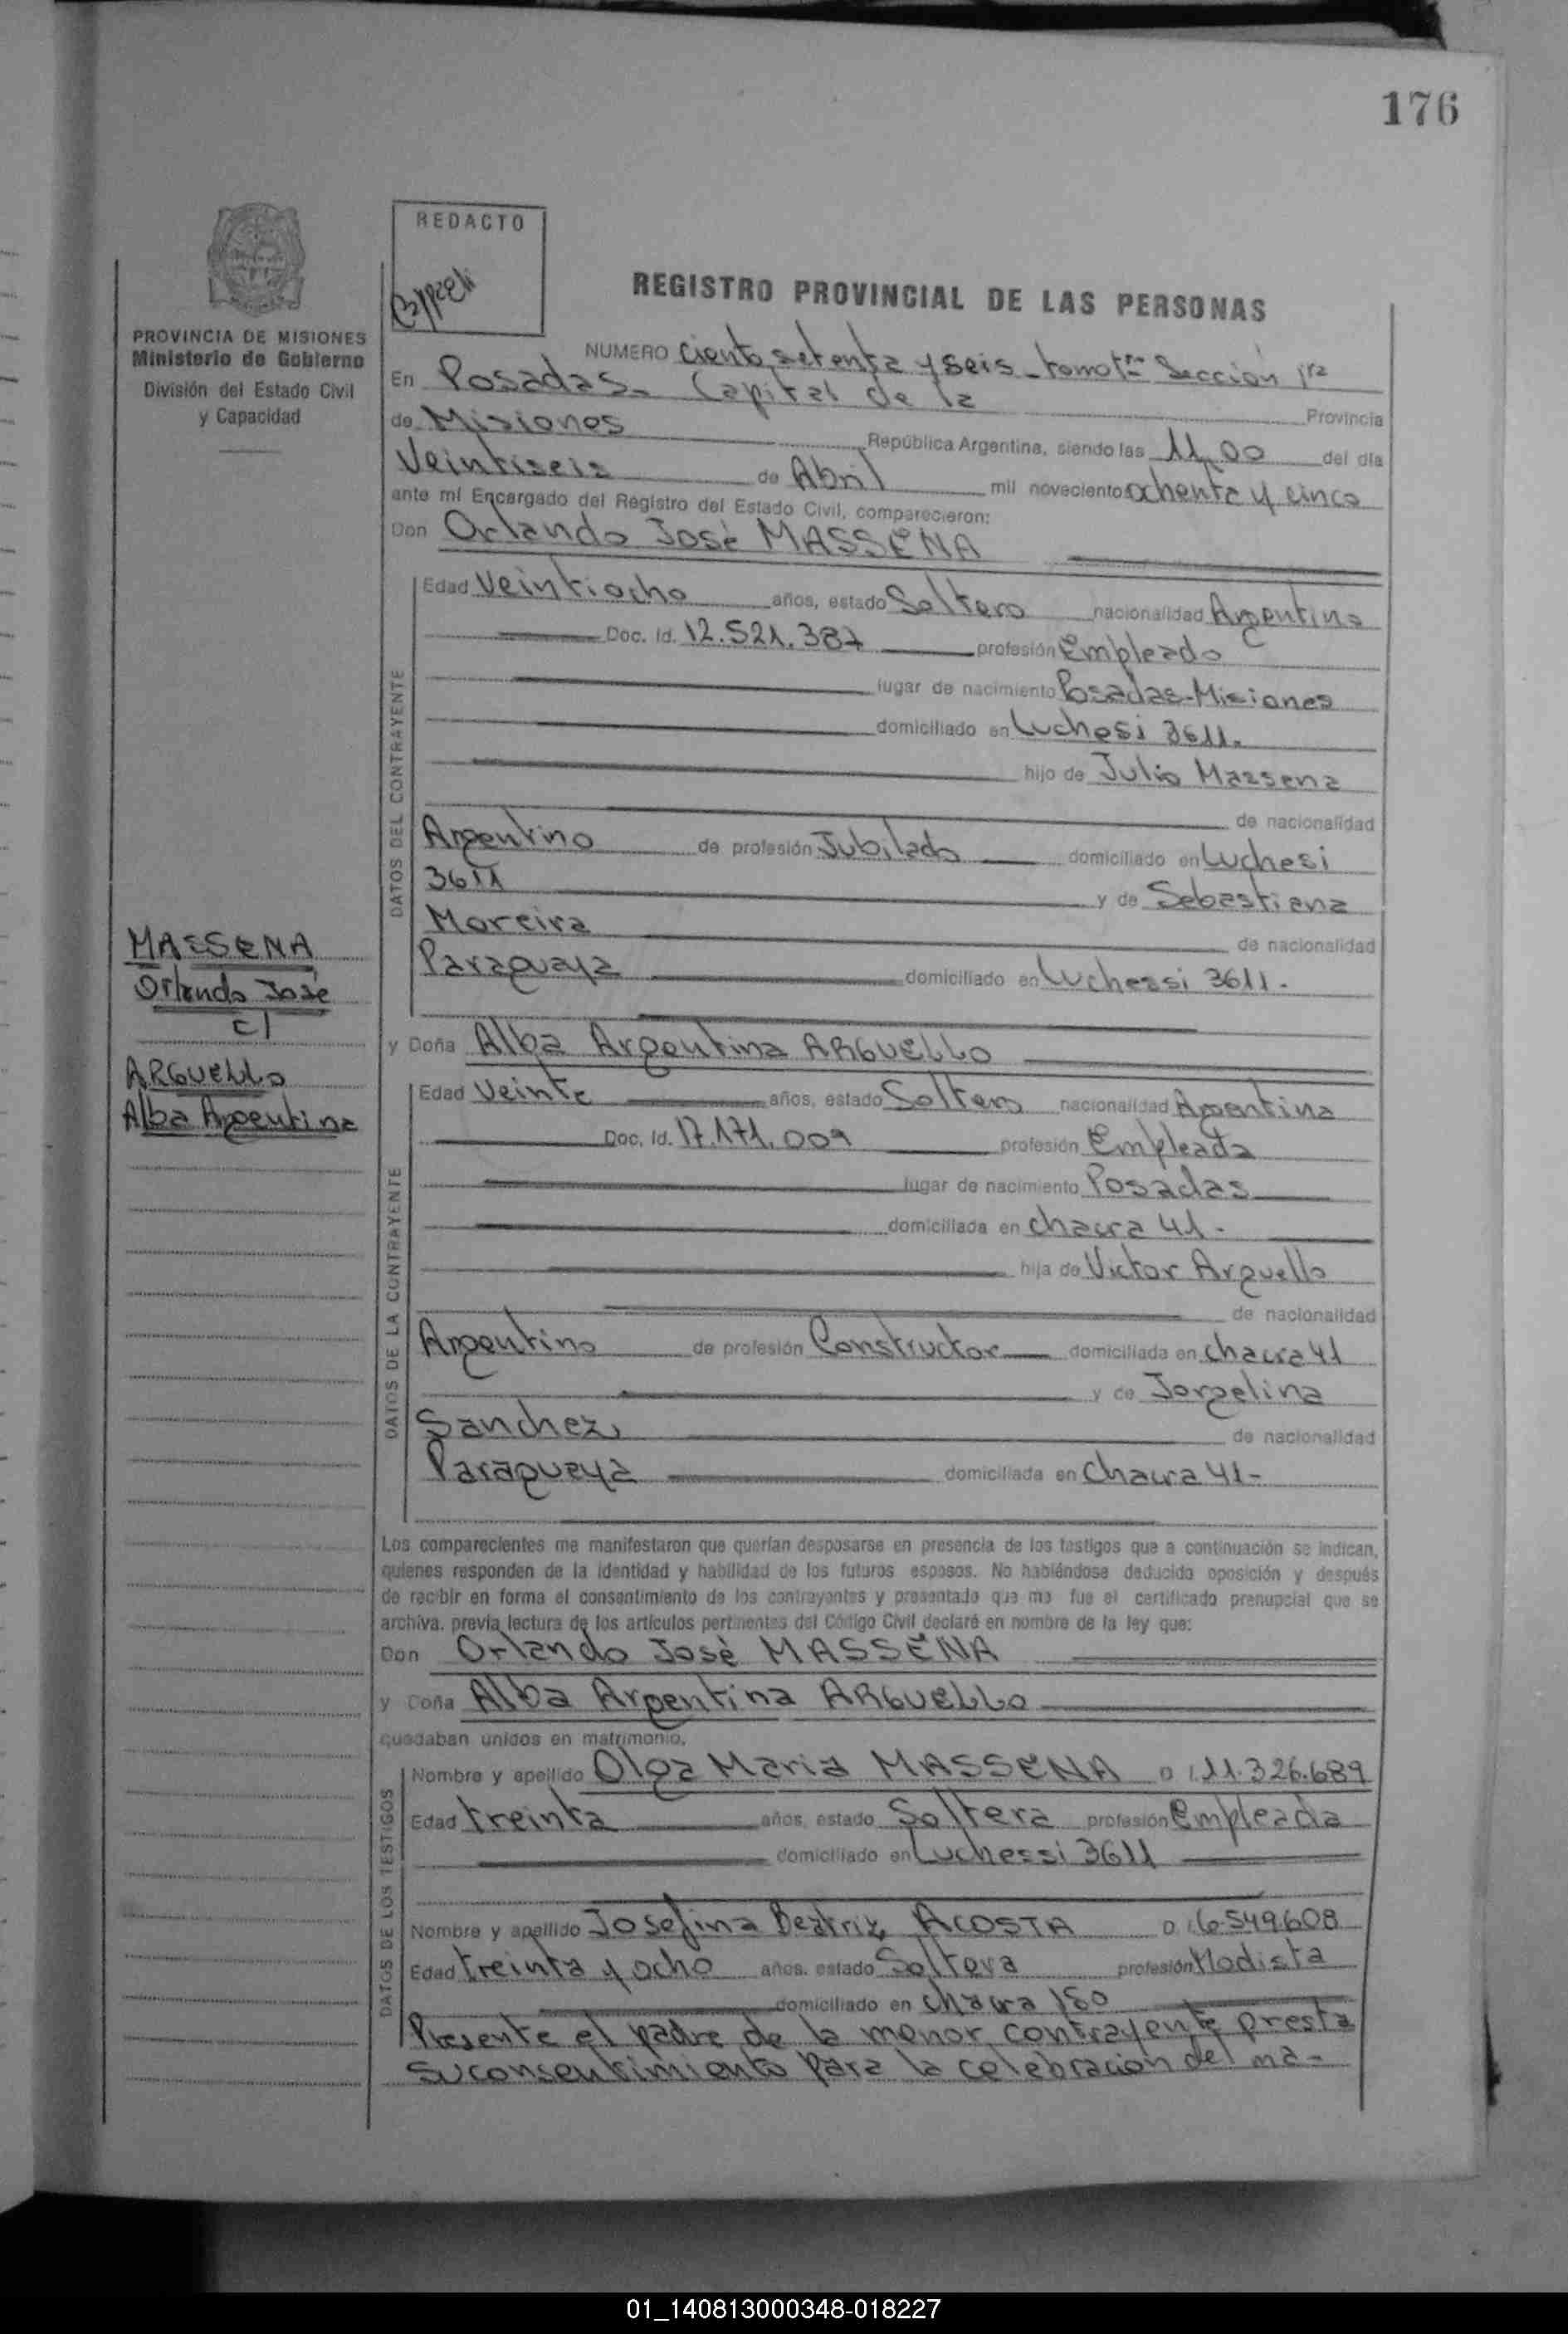 176
REDACTO
PROVINCIA DE MISIONES
Ministerio de Gobierno
División del Estado Civil
y Capacidad
REGISTRO PROVINCIAL DE LAS PERSONAS
NUMERO ciento setenta y seis - tomo 1º Sección 1ra
En Posadas - Capital de la Provincia
de Misiones República Argentina, siendo las 11,00 del día
Veintiseis de Abril mil novecientos ochenta y cinco
ante mí Encargado del Registro del Estado Civil, comparecieron:
Don Orlando José MASSENA
DATOS DEL CONTRAYENTE
Edad Veintiocho años, estado Soltero nacionalidad Argentina
Doc. Id. 12.521.387 profesión Empleado
lugar de nacimiento Posadas-Misiones
domiciliado en Luchesi 3611.
hijo de Julio Massena
de nacionalidad
Argentino de profesión Jubilado domiciliado en Luchesi
3611 y de Sebastiana
Moreira de nacionalidad
Paraguaya domiciliado en Luchessi 3611.
MASSENA
Orlando José
c/
ARGUELLO
Alba Argentina
y Doña Alba Argentina ARGUELLO
DATOS DE LA CONTRAYENTE
Edad Veinte años, estado Soltera nacionalidad Argentina
Doc. Id. 17.171.009 profesión Empleada
lugar de nacimiento Posadas
domiciliada en chacra 41.
hija de Victor Arguello
de nacionalidad
Argentino de profesión Constructor domiciliada en chacra 41
y de Jorgelina
Sanchez de nacionalidad
Paraguaya domiciliada en Chacra 41-
Los comparecientes me manifestaron que querían desposarse en presencia de los testigos que a continuación se indican,
quienes responden de la identidad y habilidad de los futuros esposos. No habiéndose deducido oposición y después
de recibir en forma el consentimiento de los contrayentes y presentado que me fue el certificado prenupcial que se
archiva, previa lectura de los artículos pertinentes del Código Civil declaré en nombre de la ley que:
Don Orlando José MASSENA
y Doña Alba Argentina ARGUELLO
quedaban unidos en matrimonio.
DATOS DE LOS TESTIGOS
Nombre y apellido Olga Maria MASSENA D.I. 11.326.689
Edad treinta años, estado Soltera profesión Empleada
domiciliado en Luchessi 3611
Nombre y apellido Josefina Beatriz ACOSTA D.I. 6.549.608
Edad treinta y ocho años, estado Soltera profesión Modista
domiciliado en Chacra 150
Presente el padre de la menor contrayente presta
su consentimiento para la celebración del ma-
01_140813000348-018227